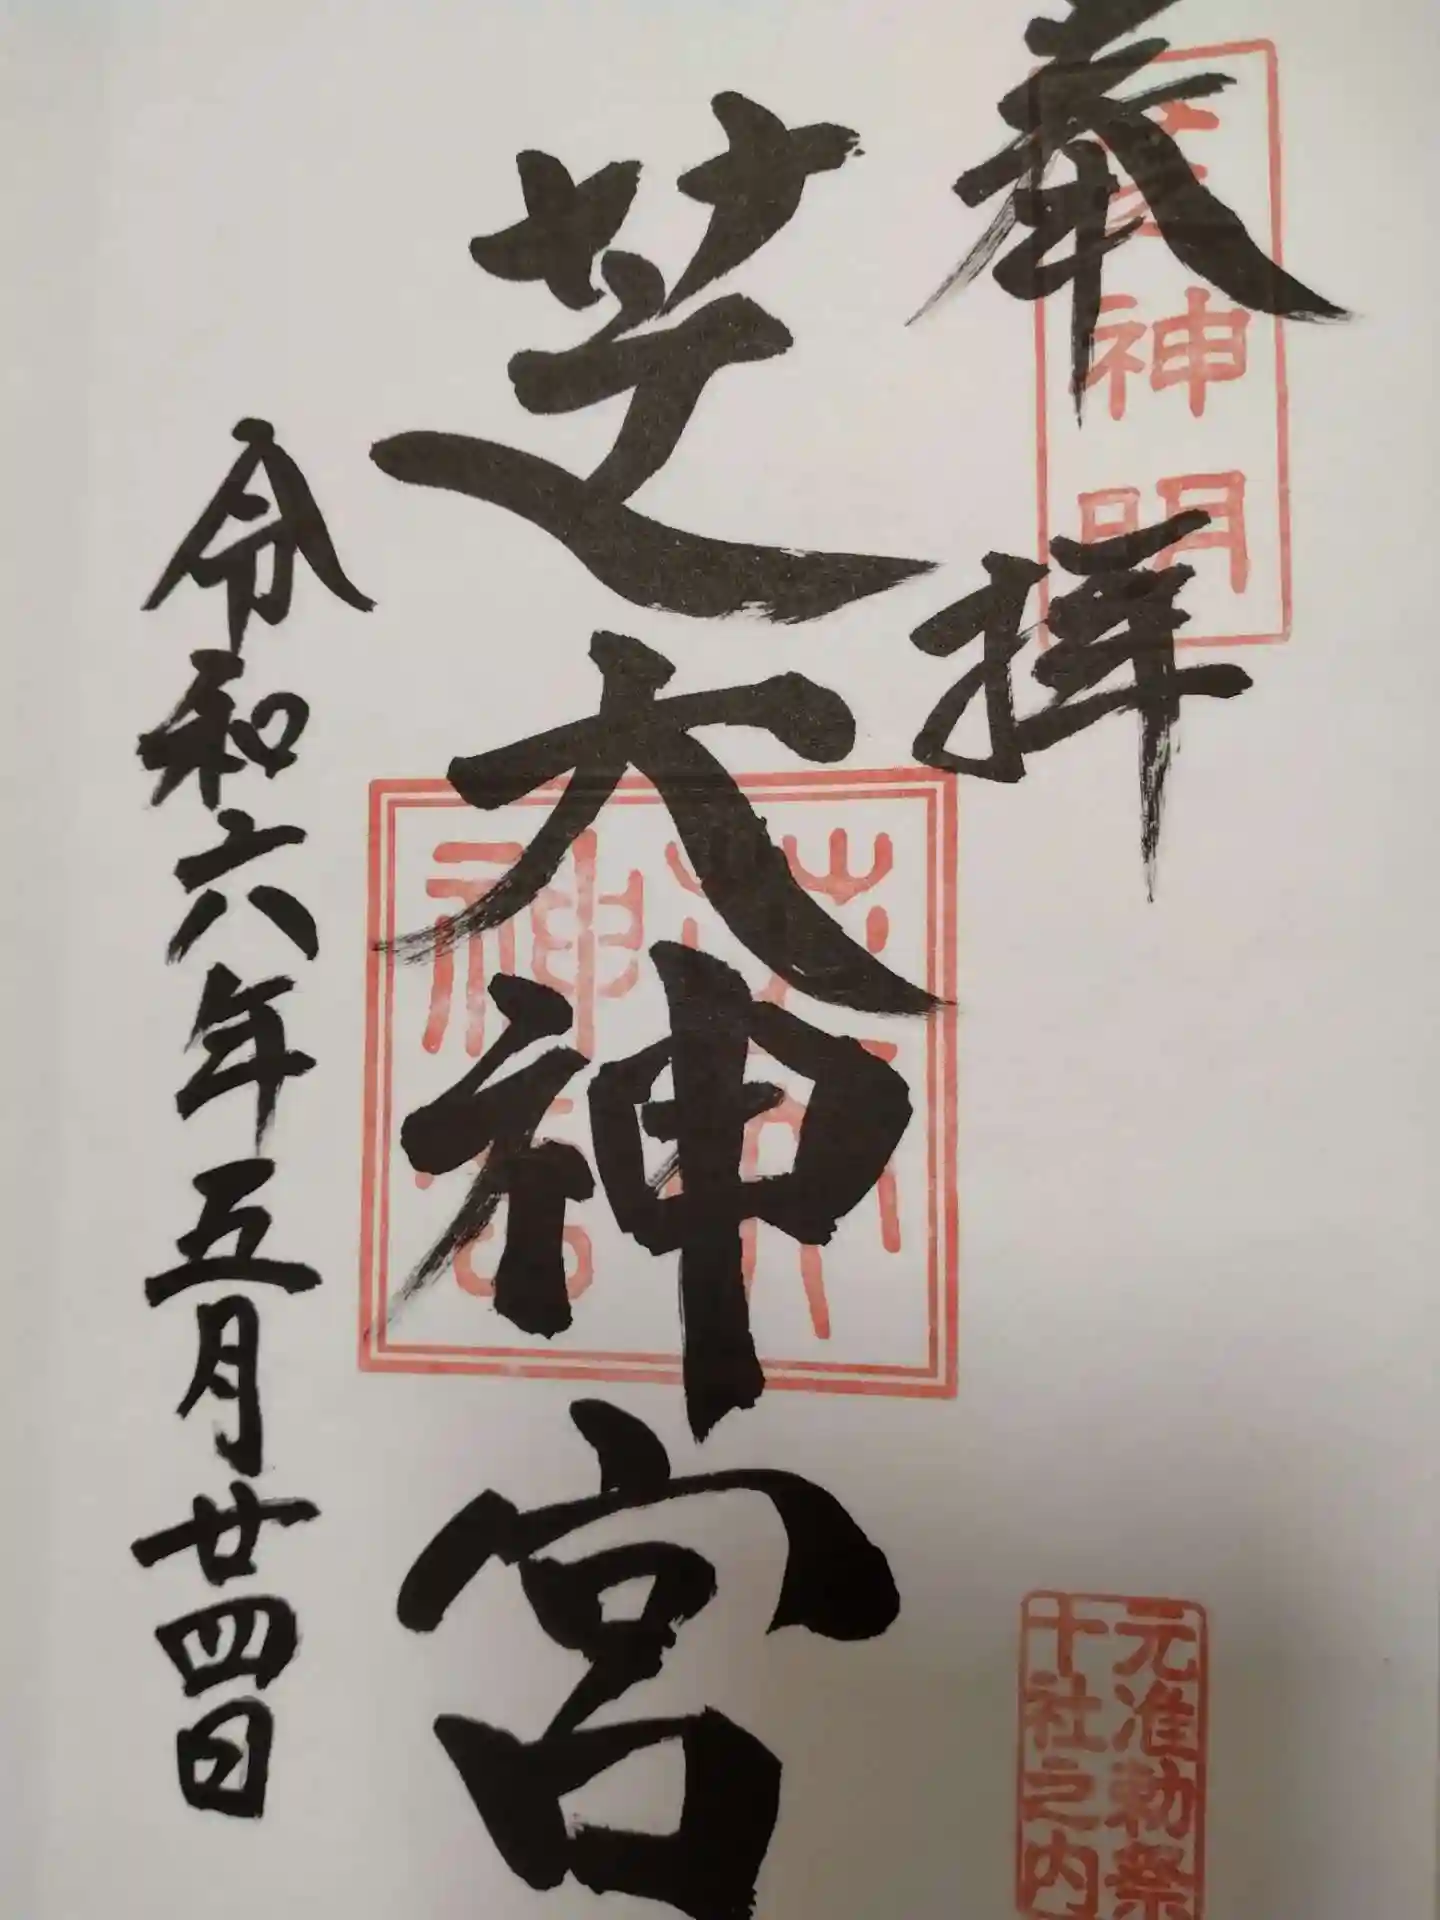 奉拝
芝神明
芝大神宮
芝大神宮
令和六年五月廿四日
元准勅祭
十社之内